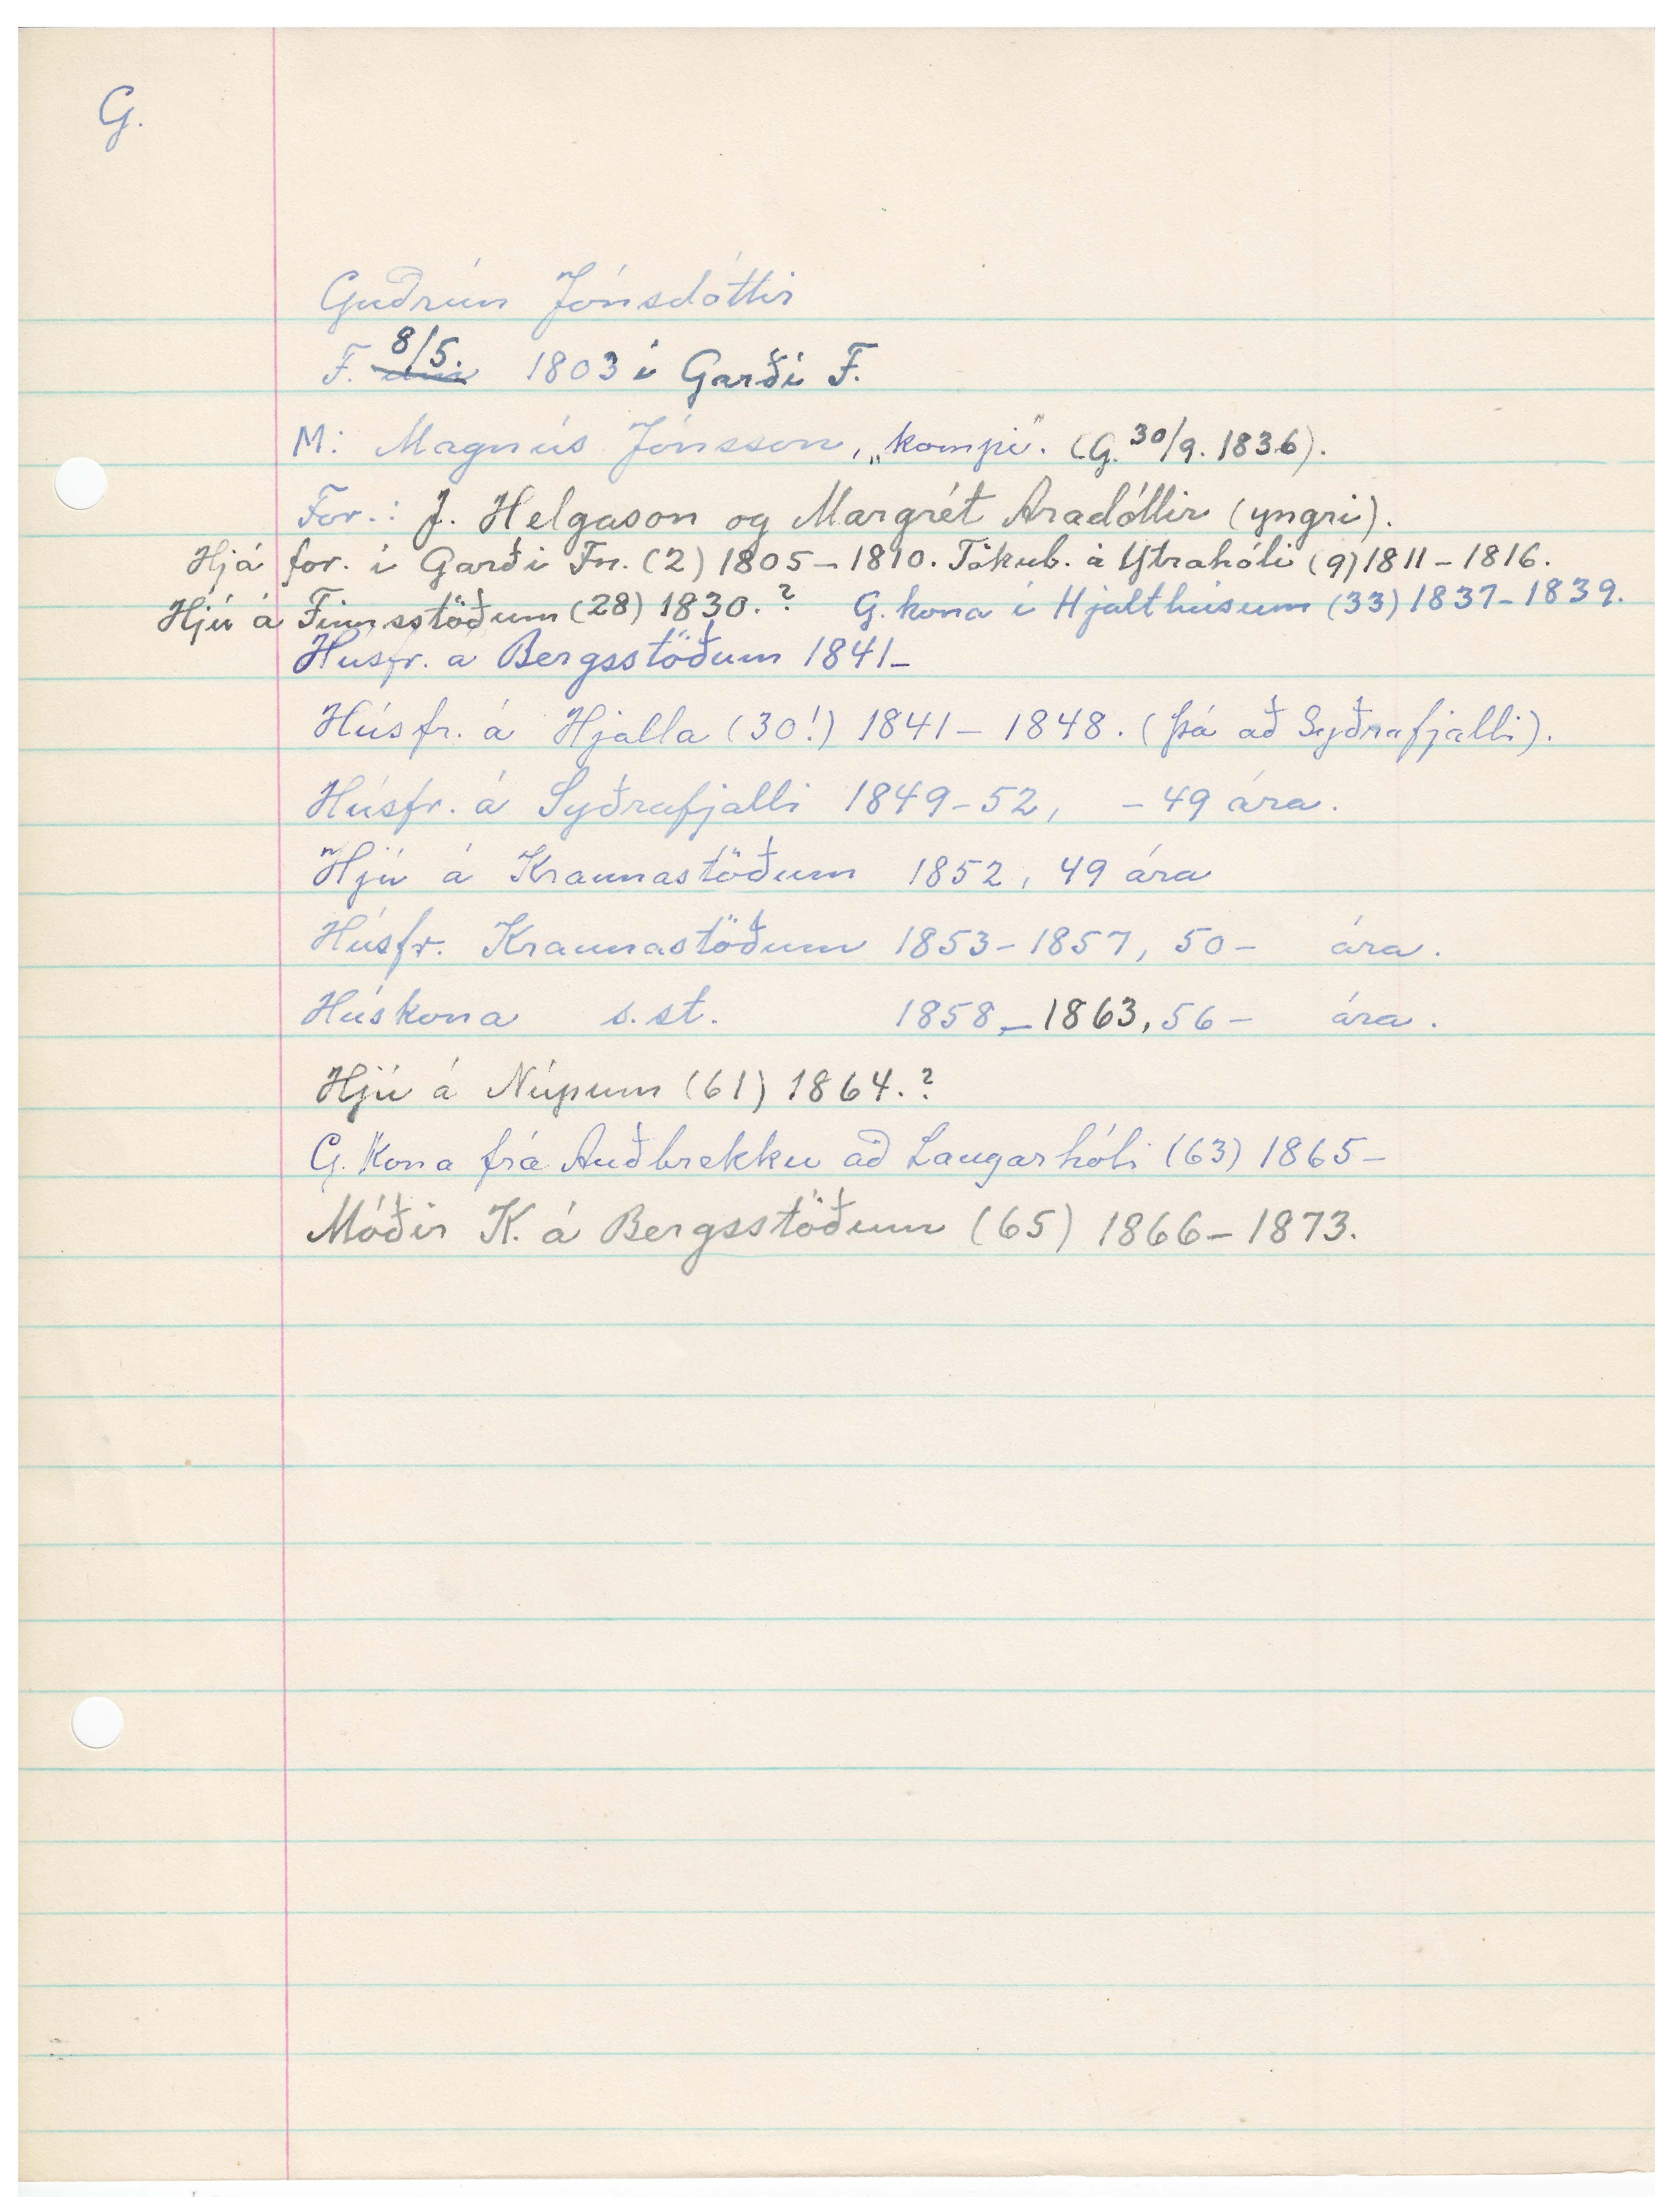 G.
Guðrún Jónsdóttir
F. 8/5. 1803 í Garði F.
M: Magnús Jónsson, „kompi“. (G. 30/9. 1836).
For.: J. Helgason og Margrét Aradóttir (yngri).
Hjá for. í Garði Fn. (2) 1805-1810. Tökub. á Ytrahóli (9) 1811-1816.
Hjú á Finnsstöðum (28) 1830.? G. kona í Hjalthúsum (33) 1837-1839.
Húsfr. a Bergsstöðum 1841-
Húsfr. á Hjalla (30!) 1841-1848. (þá að Syðrafjalli).
Húsfr. á Syðrafjalli 1849-52, -49 ára.
"Hjú á Kraunastöðum 1852, 49 ára
Húsfr. Kraunastöðum 1853-1857, 50- ára.
Húskona s.st. 1858-1863, 56- ára.
Hjú á Núpum (61) 1864.?
G. Kona frá Auðbrekku að Laugarhóli (63) 1865-
Móðir K. á Bergsstöðum (65) 1866-1873.